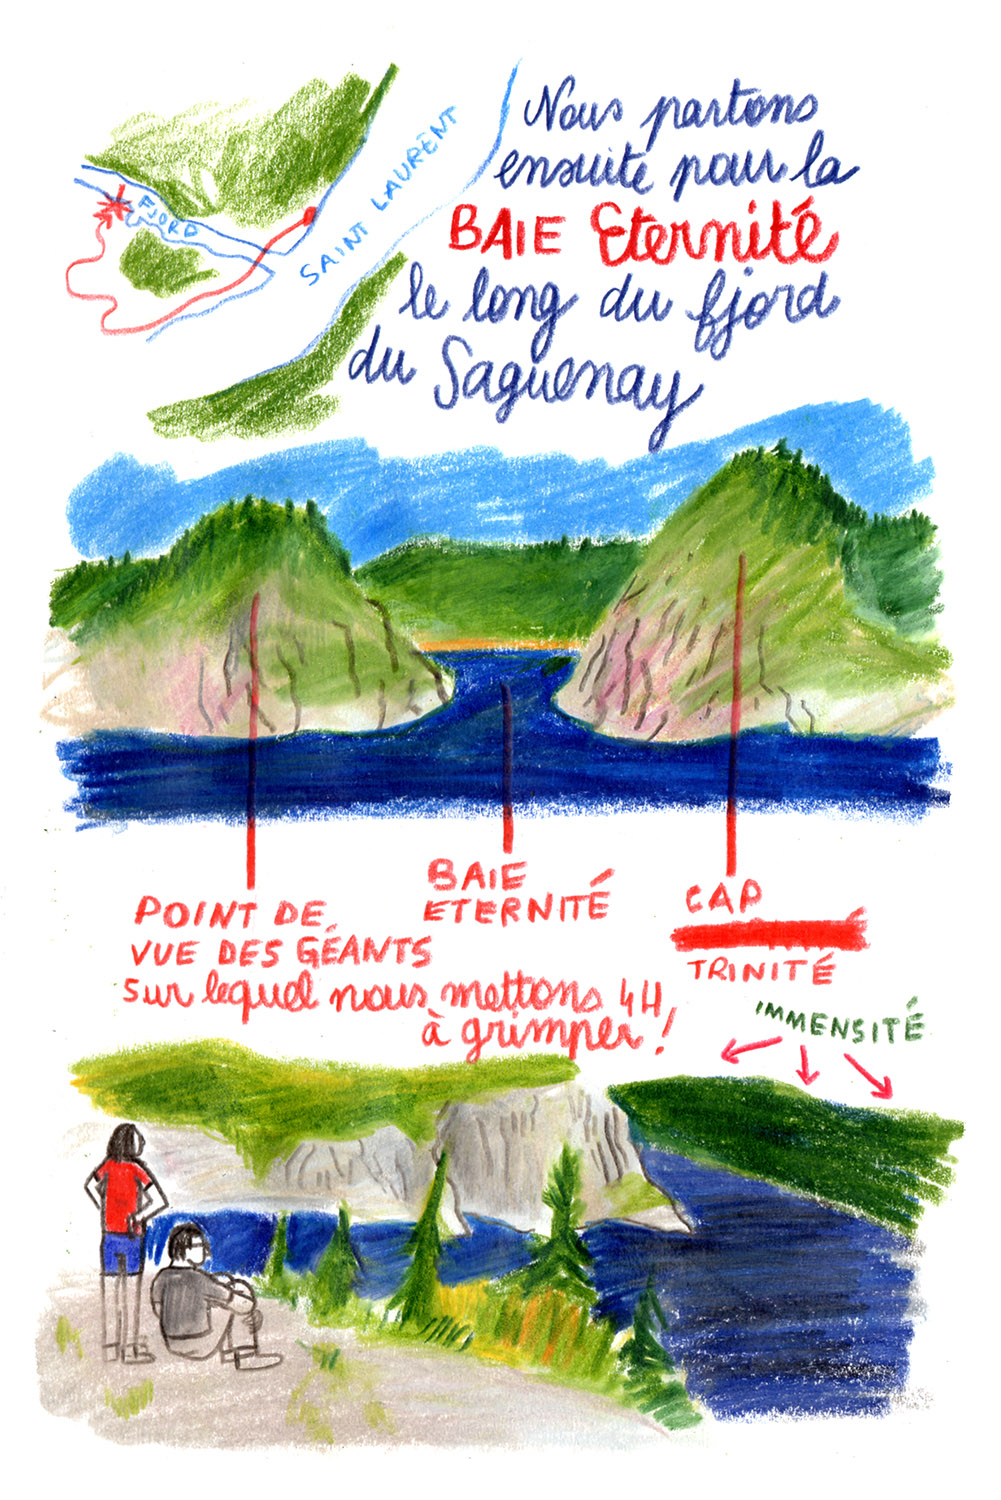 Nous partons
ensuite pour la
BAIE Eternité
le long du fjord
du Saguenay
FJORD
SAINT LAURENT
BAIE
ETERNITÉ
CAP
TRINITÉ
POINT DE
VUE DES GÉANTS
sur lequel nous mettons 4H
à grimper !
IMMENSITÉ